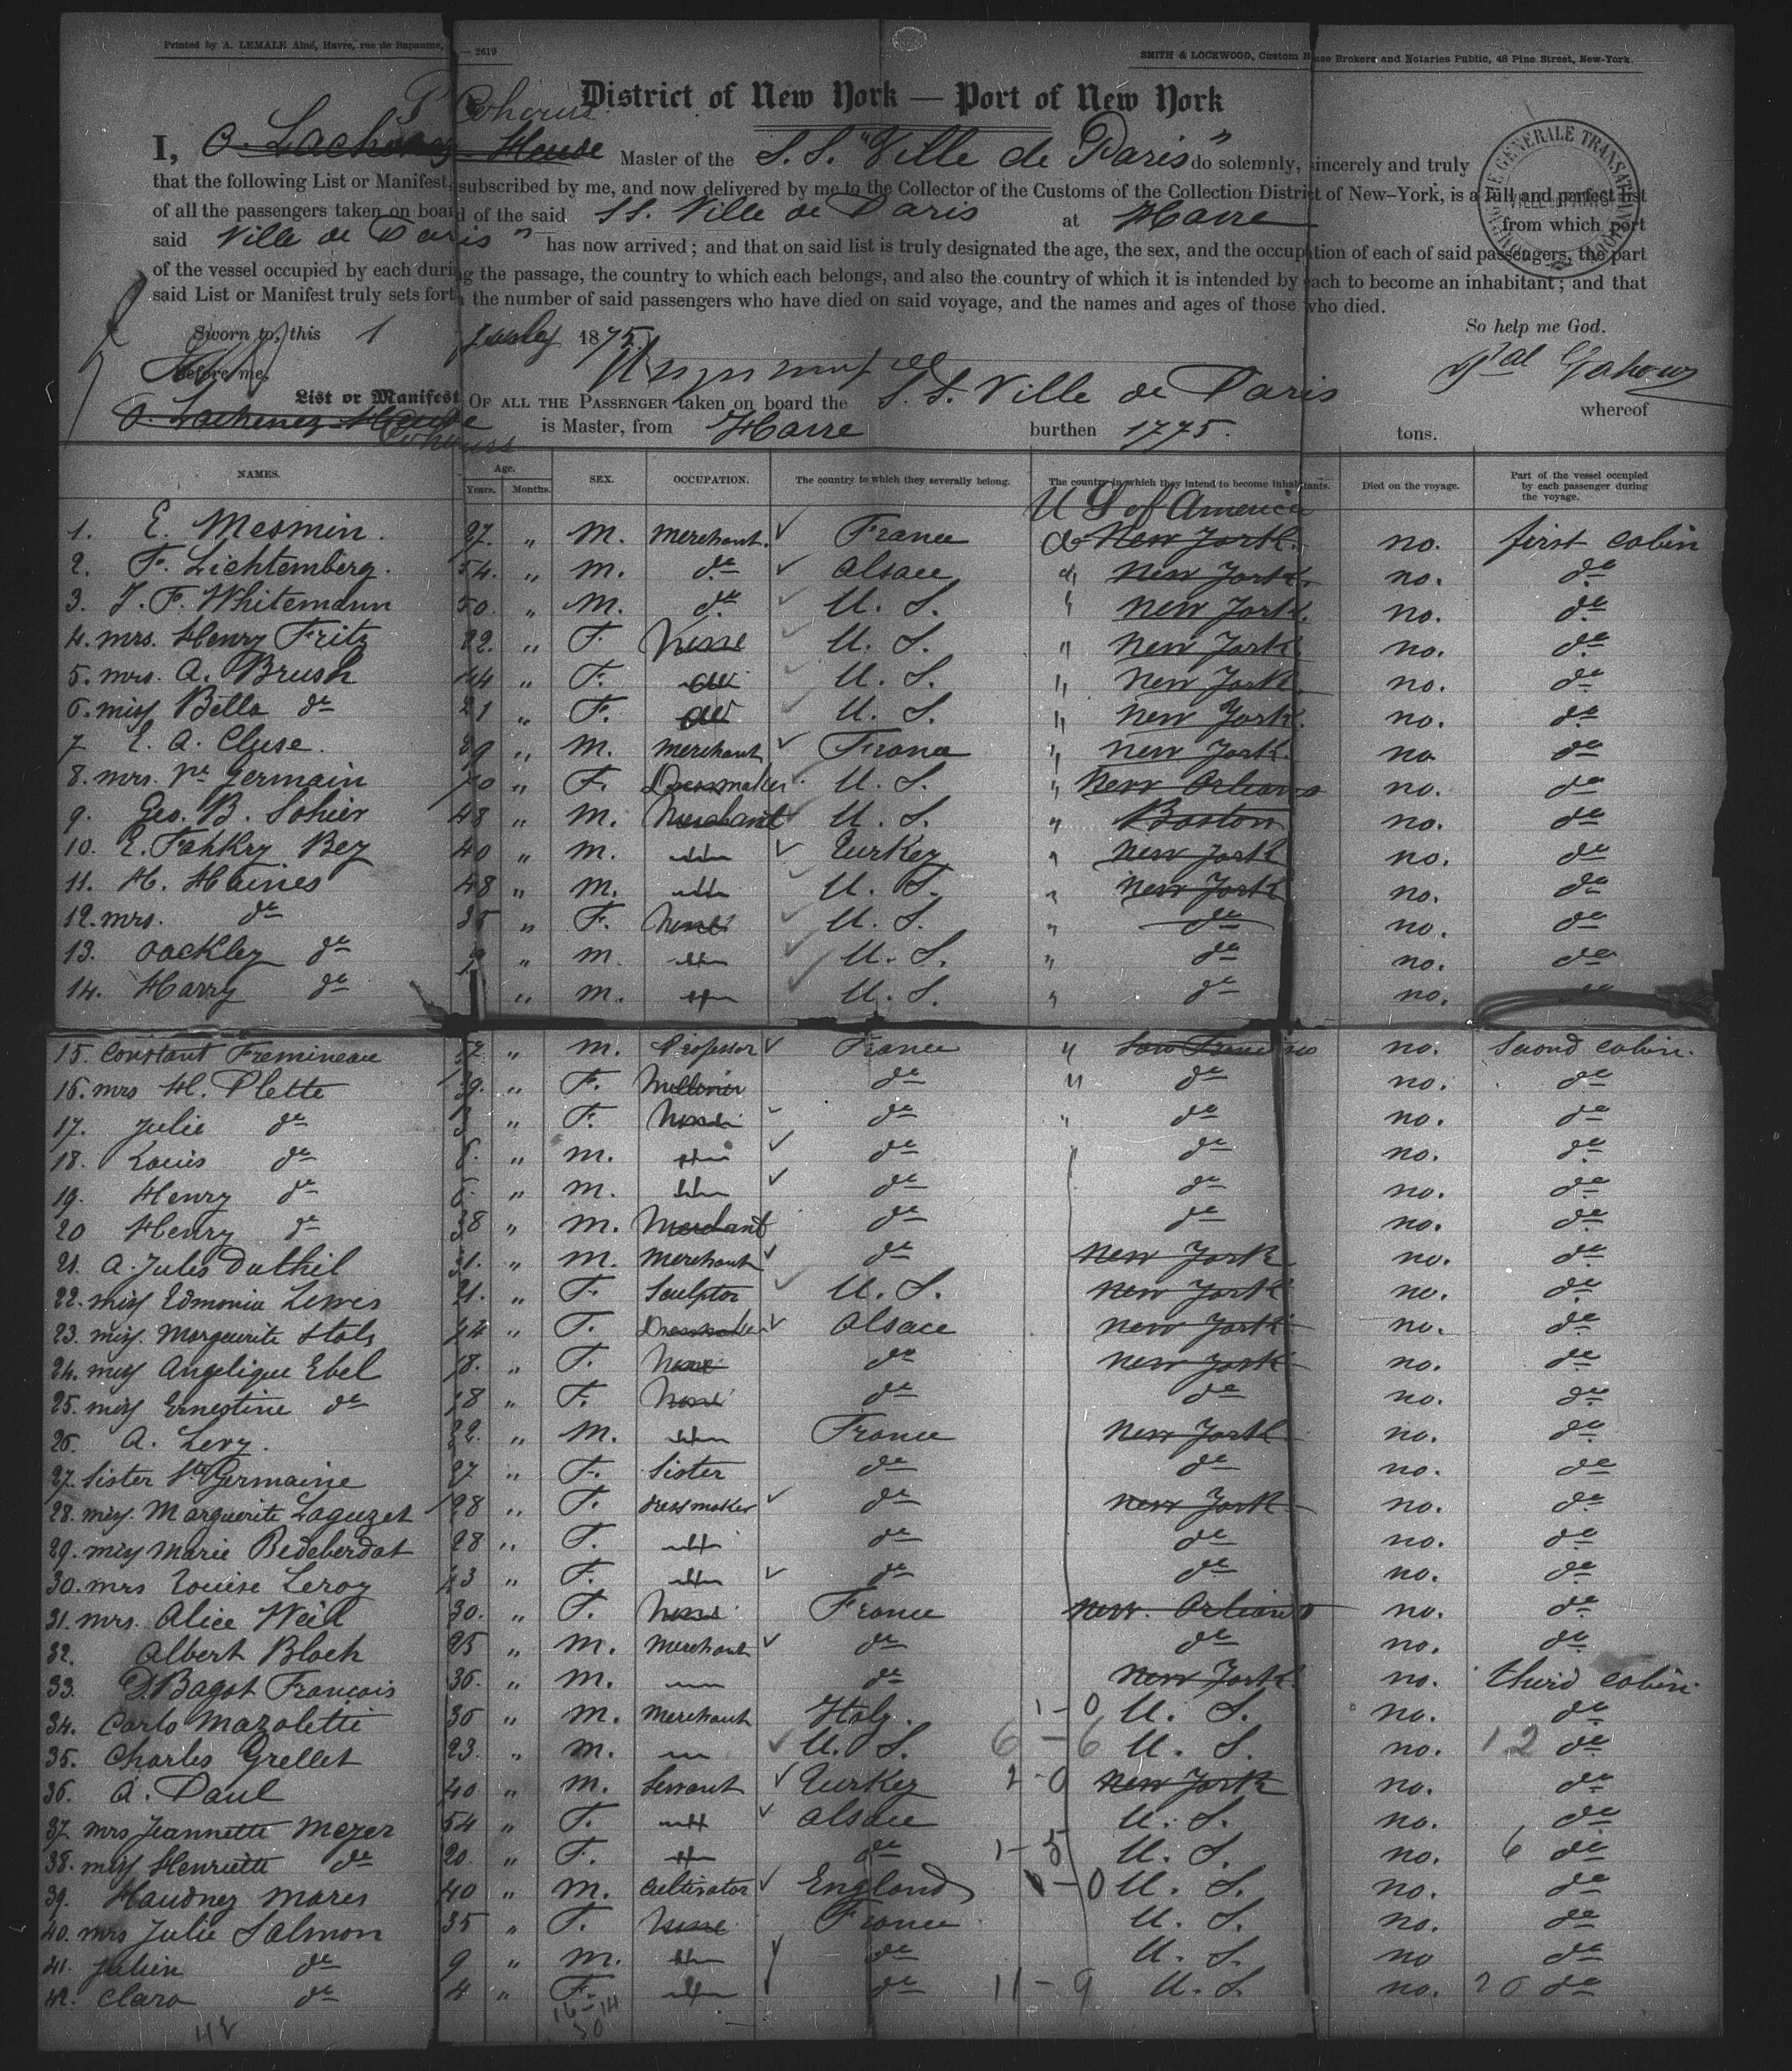 Printed by A. LEMALE Aîné, Havre, rue de Bapaume, — 2619
SMITH & LOCKWOOD, Custom House Brokers and Notaries Public, 48 Pine Street, New-York.
District of New York — Port of New York
I, O. Lachenez-Heude Master of the S.S. "Ville de Paris" do solemnly, sincerely and truly
that the following List or Manifest, subscribed by me, and now delivered by me to the Collector of the Customs of the Collection District of New-York, is a full and perfect list
of all the passengers taken on board of the said SS. Ville de Paris at Havre from which port
said Ville de Paris" has now arrived; and that on said list is truly designated the age, the sex, and the occupation of each of said passengers, the part
of the vessel occupied by each during the passage, the country to which each belongs, and also the country of which it is intended by each to become an inhabitant; and that
said List or Manifest truly sets forth the number of said passengers who have died on said voyage, and the names and ages of those who died.
Sworn to, this 1 July 1875 So help me God.
before me,
List or Manifest OF ALL THE PASSENGER taken on board the S.S. Ville de Paris whereof
O. Lachenez-Heude is Master, from Havre burthen 1775. tons.
NAMES. Age. Years. Months. SEX. OCCUPATION. The country to which they severally belong. The country in which they intend to become inhabitants. Died on the voyage. Part of the vessel occupied by each passenger during the voyage.
U S of America
1. E. Mesmin. 27. " M. Merchant. France do New York. no. first cabin
2. F. Lichtemberg. 54. " M. do Alsace New York. no. do
3. J. F. Whitemann 50. " M. do U. S. " New York. no. do
4. Mrs. Henry Fritz 22. " F. None U. S. " New York. no. do
5. Mrs. A. Brush 44 " F. U. S. " New York. no. do
6. Miss Bella do 21 " F. U. S. " New York. no. do
7 E. A. Cluse. " M. Merchant France " New York. no do
8. Mrs. Germain " F. Dressmaker U. S. " New Orleans no. do
9. Geo. B. Sohier 48 " M. Merchant U. S. " Boston no. do
10. E. Fahkry Bey 40 " M. Turkey " New York no. do
11. H. Haines 48 " M. U. S. " New York no. do
12. Mrs. do 35 " F. None U. S. " do no. do
13. Oackley do " M. U. S. " do no. do
14. Harry do " M. U. S. " do no. do
15. Constant Fremineau " M. Professor France " San Francisco no. Second cabin.
16. Mrs H. Plette 39. " F. Milliner do " do no. do
17. Julie do " F. None do " do no. do
18. Louis do 8. " M. do do no. do
19. Henry do 6. " M. do do no. do
20 Henry do 38 " M. Merchant do do no. do
21. A. Jules Duthil 31. " M. Merchant do New York no. do
22. Miss Edmonia Lewes 21. " F. Sculptor U. S. New York no. do
23. Miss. Marguerite Stols 44 " F. Dressmaker Alsace New York no. do
24. Miss Angelique Ebel 18. " F. None do New York no. do
25. Miss Ernestine do 18 " F. None do do no. do
26. A. Levy. 22. " M. France New York no. do
27. Sister Ste Germaine 27 " F. Sister do do no. do
28. Miss. Marguerite Laguzet 28 " F. dressmaker do New York no. do
29. Miss Marie Bedeberdat 28 " F. do do no. do
30. Mrs Louise Leroy 43 " F. do do no. do
31. Mrs. Alice Weil 30. " F. None France New. Orleans no. do
32. Albert Bloch 25 " M. Merchant do do no. do
33. D. Bagot Francois 36. " M. do New York no. third cabin
34. Carlo Mazoletti 36 " M. Merchant Italy. 1-0 U. S. no. do
35. Charles Grellet 23. " M. U. S. 6-6 U. S. no. 12 do
36. A. Paul 40. " M. Servant Turkey 2-0 New York no. do
37. Mrs Jeannette Meyer 54 " F. Alsace U. S. no. do
38. Miss Henriette do 20. " F. do 1-5 U. S. no. 6 do
39. Haudney Mares 40 " M. Cultivator England 0-0 U. S. no. do
40. Mrs Julie Salmon 35 " F. None France U. S. no. do
41. Julien do 9 " M. do U. S. no do
42. Clara do 4 " F. do 11-9 U. S. no. 20 do
16-14
30
42